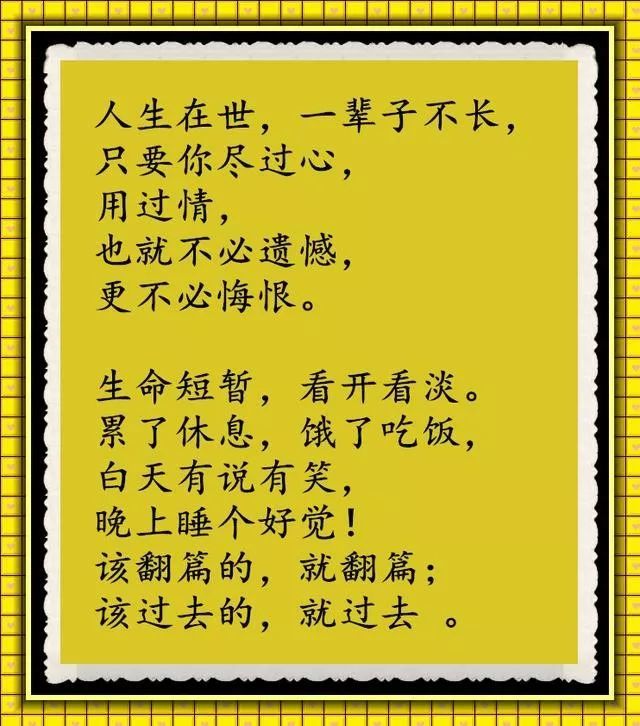 人生在世，一辈子不长，
只要你尽过心，
用过情，
也就不必遗憾，
更不必悔恨。
生命短暂，看开看淡。
累了休息，饿了吃饭，
白天有说有笑，
晚上睡个好觉！
该翻篇的，就翻篇；
该过去的，就过去 。